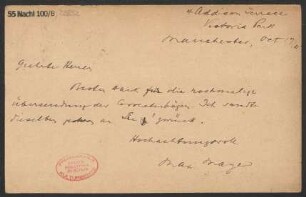 55 Nachl 100/B
4 Addison Terrace
Victoria Park
Manchester, Oct
Geehrter Herr,
Besten Dank für die nochmalige
Übersendung der Correcturbogen. Ich sandte
dieselben gestern an Sie zurück.
Hochachtungsvoll
Max Mayer